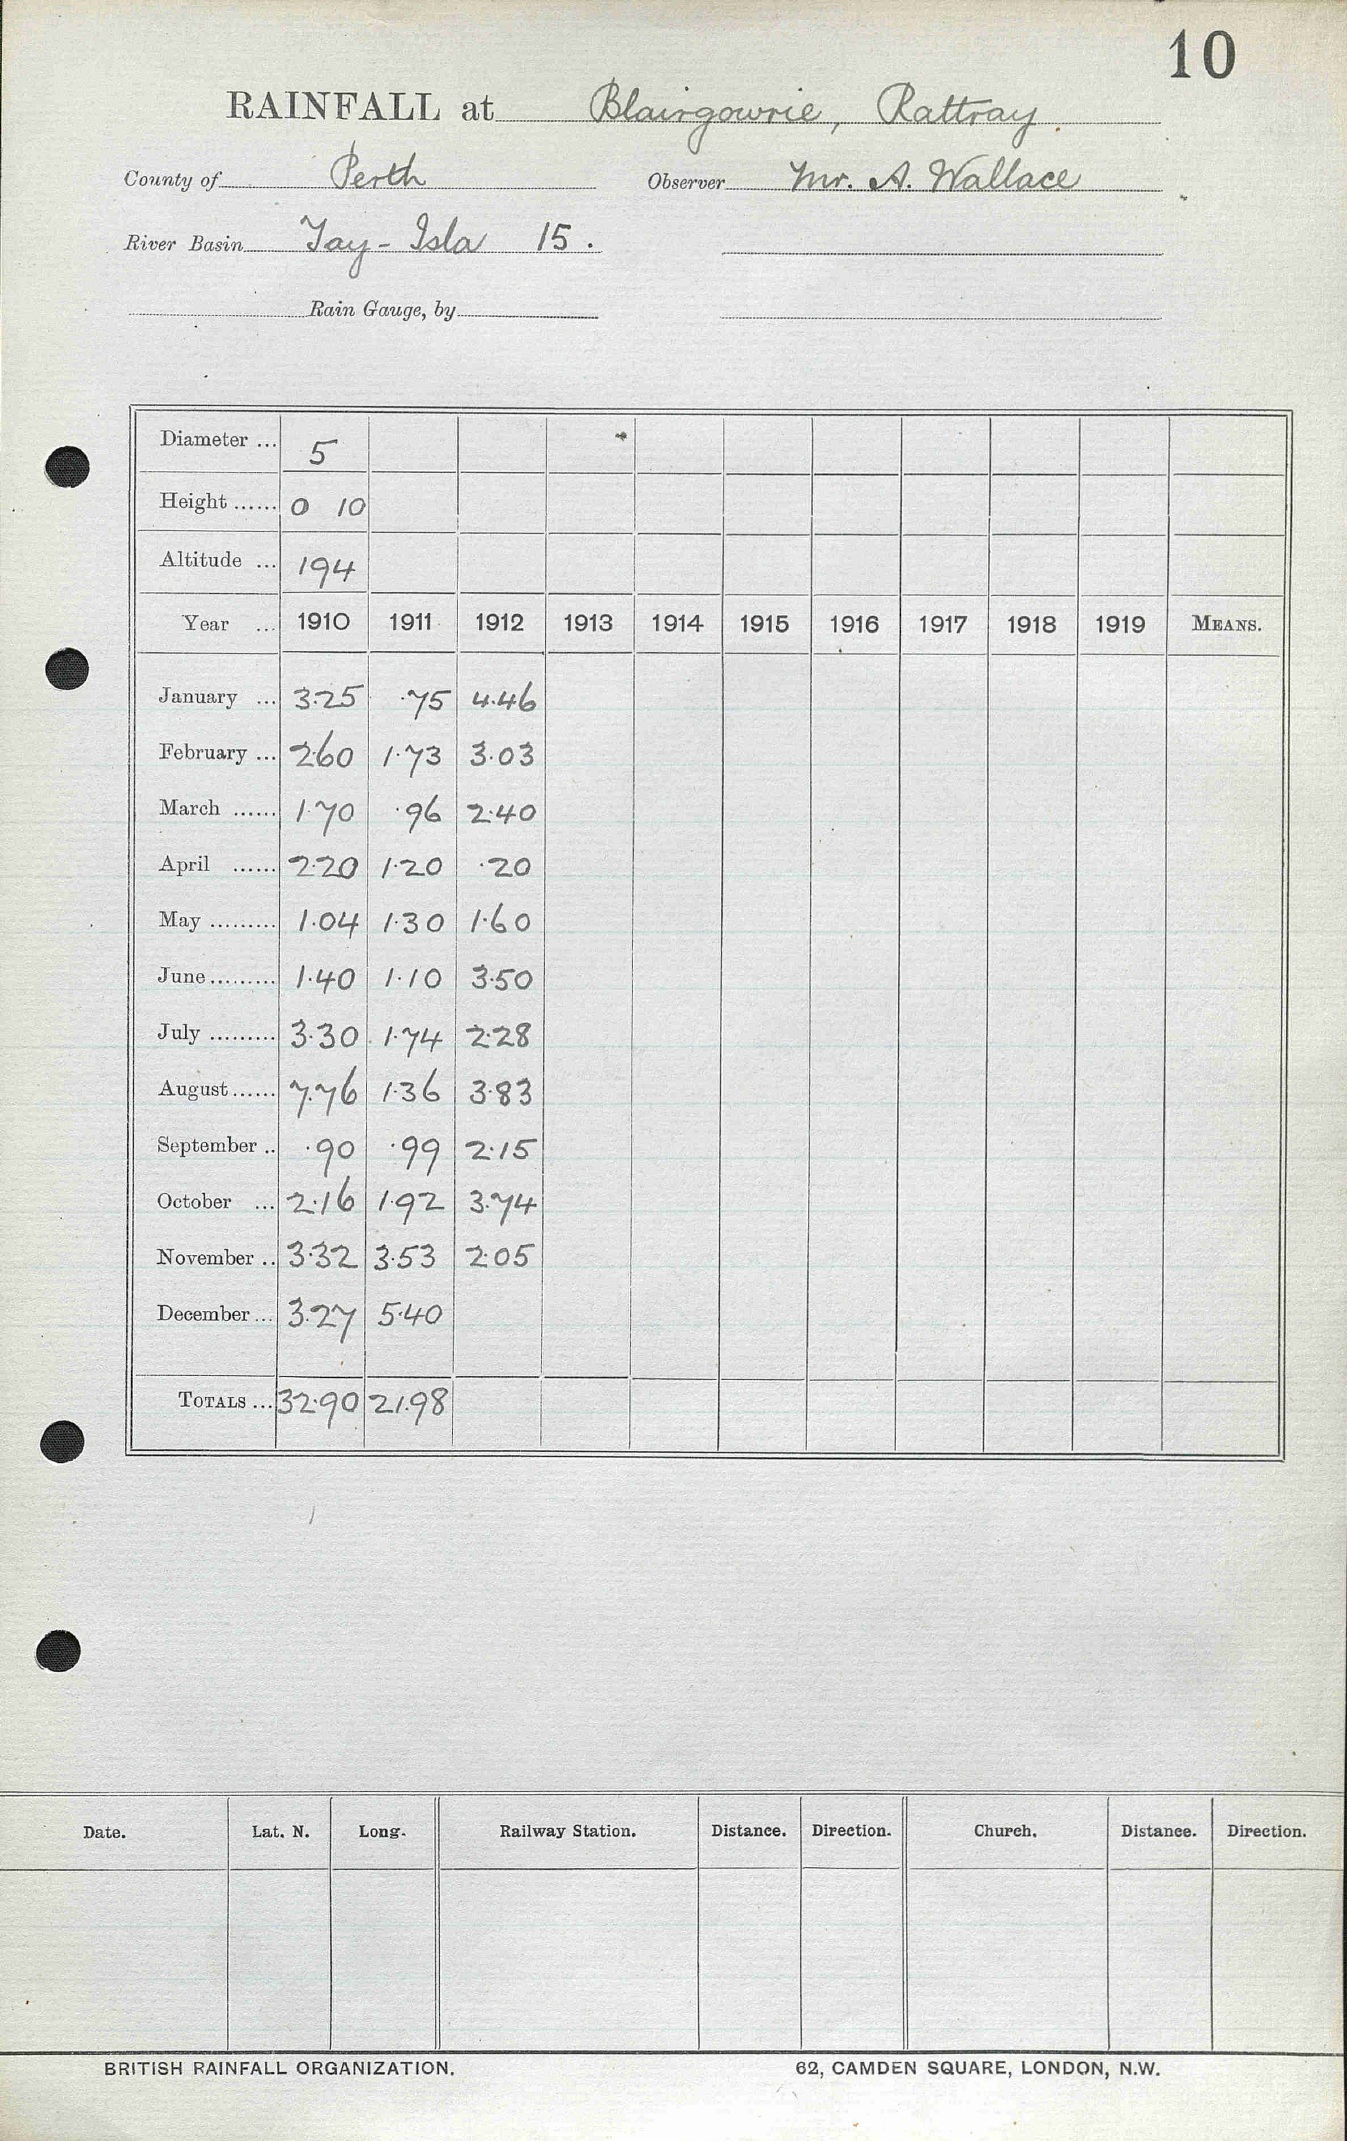 10
RAINFALL at Blairgowrie, Rattray.
County of Perth Observer Mr. A. Wallace
River Basin Tay - Isla 15.
Rain Gauge, by
Diameter ... 5
Height ...... 0 10
Altitude ... 194
Year ... 1910 1911 1912 1913 1914 1915 1916 1917 1918 1919 MEANS.
January ... 3.25 .75 4.46
February ... 2.60 1.73 3.03
March ...... 1.70 .96 2.40
April ...... 2.20 1.20 .20
May ......... 1.04 1.30 1.60
June ......... 1.40 1.10 3.50
July ......... 3.30 1.74 2.28
August ...... 7.76 1.36 3.83
September .. .90 .99 2.15
October ... 2.16 1.92 3.74
November .. 3.32 3.53 2.05
December ... 3.27 5.40
TOTALS ... 32.90 21.98
Date. Lat. N. Long. Railway Station. Distance. Direction. Church. Distance. Direction.
BRITISH RAINFALL ORGANIZATION. 62, CAMDEN SQUARE, LONDON, N.W.